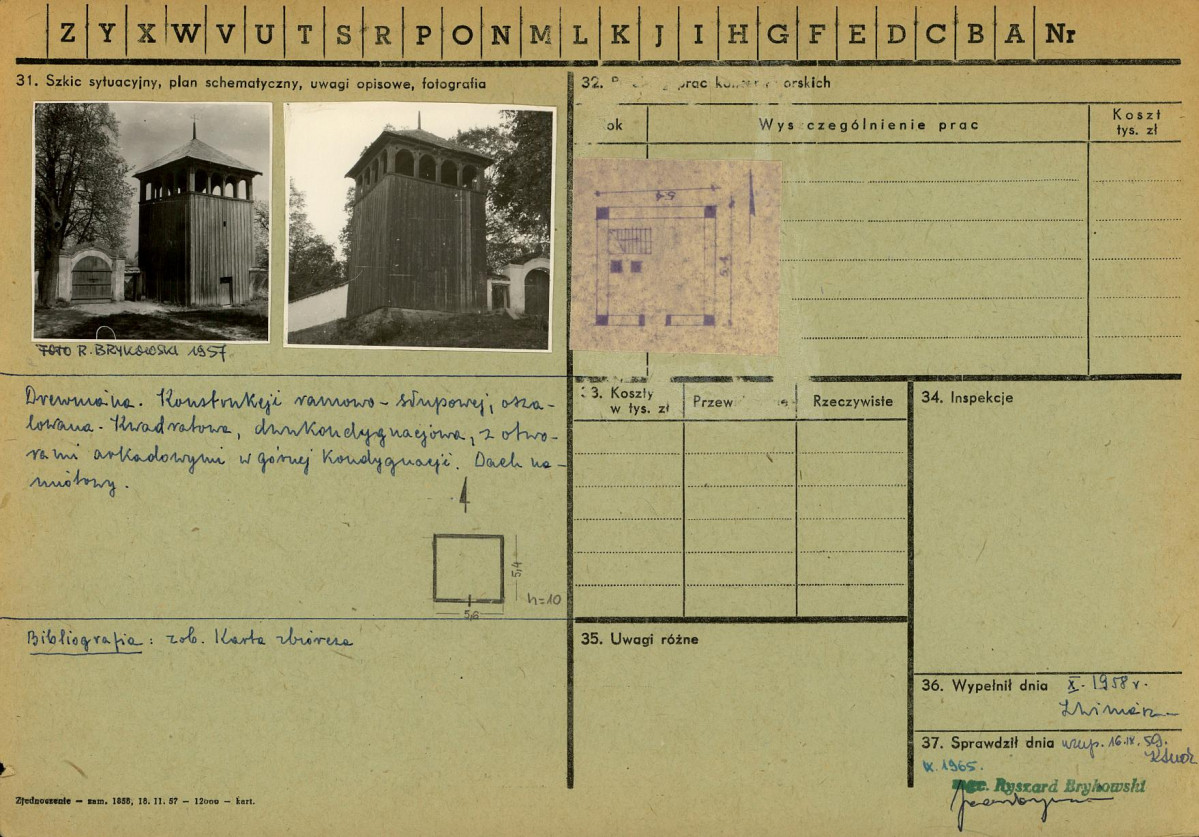 Z Y X W V U T S R P O N M L K J I H G F E D C B A Nr
31. Szkic sytuacyjny, plan schematyczny, uwagi opisowe, fotografia
FOTO R. BRYKOWSKI 1957
Drewniana. Konstrukcji ramowo-słupowej, osza-
lowana. Kwadratowa, dwukondygnacjowa, z otwo-
rami arkadowymi w górnej kondygnacji. Dach na-
miotowy.
5,4
h=10
5,6
Bibliografia: zob. Karta zbiorcza
Zjednoczenie — zam. 1858, 18. 11. 57 — 12000 — kart.
32. prac
ok
Wyszczególnienie prac
Koszt
tys. zł
5.4
5.4
33. Koszty
w tys. zł
Przew
Rzeczywiste
34. Inspekcje
35. Uwagi różne
36. Wypełnił dnia X. 1958 r.
37. Sprawdził dnia uzup. 16.IX.59.
IX.1965.
mgr. Ryszard Brykowski